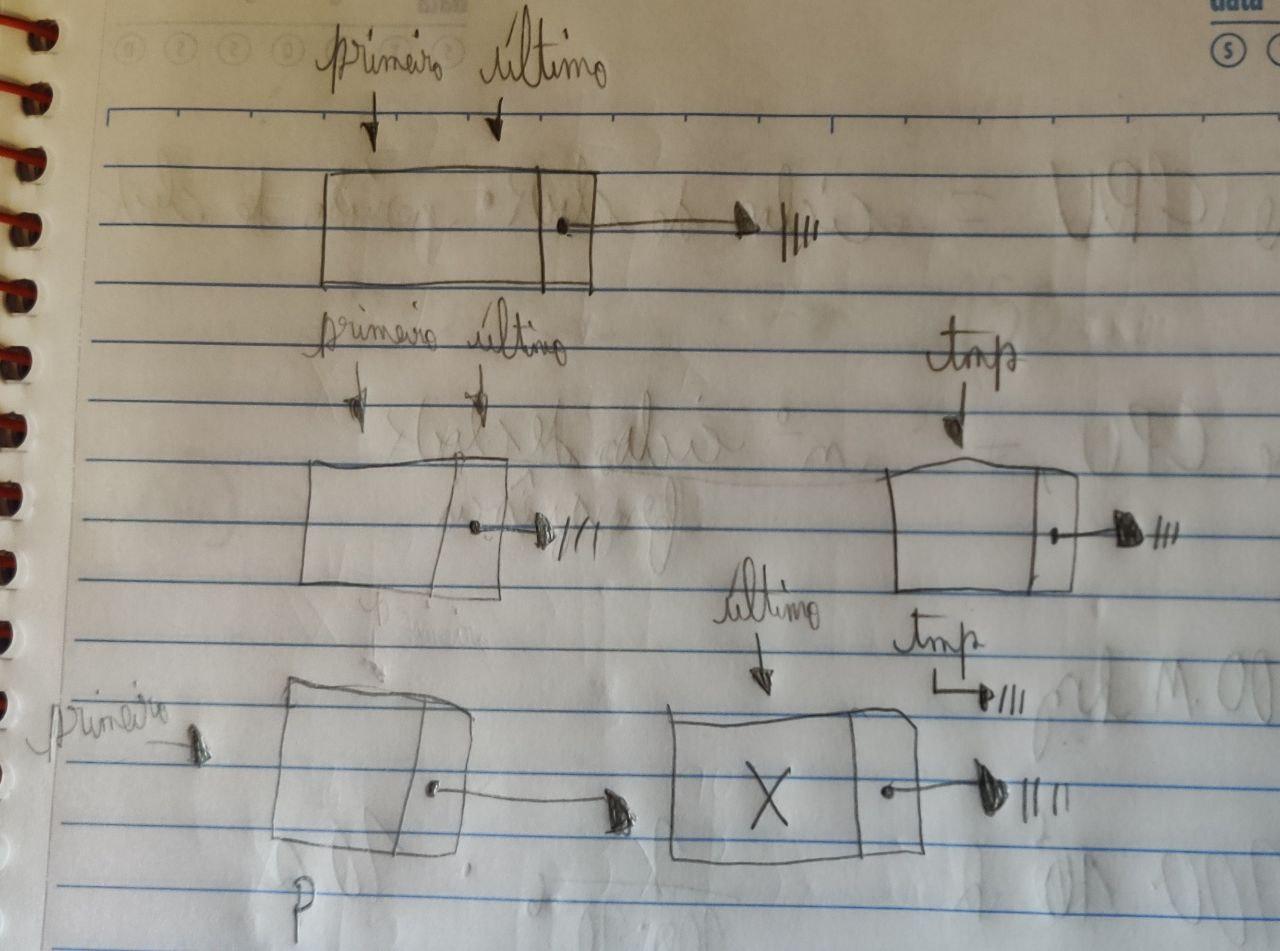 data
S
primeiro último
primeiro último
tmp
último
tmp
primeiro
X
p